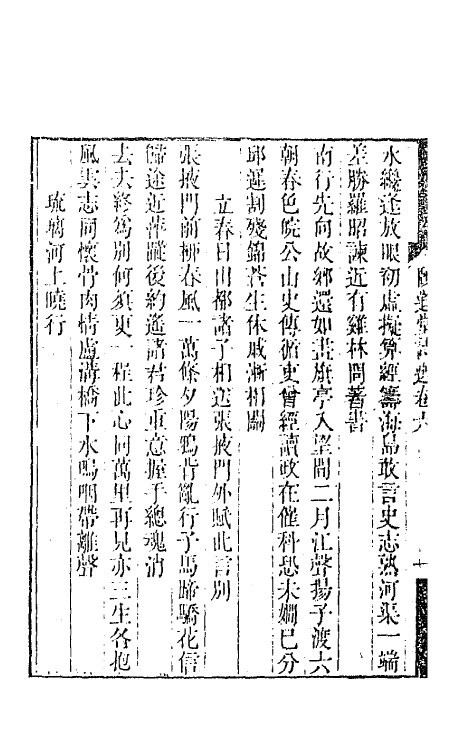 堂詩選卷六
十
水纔逢放眼初虛擬算經籌海島敢言史志熟河渠一端
差勝羅昭諫近有雞林問著書
南行先向故鄉還如畫旗亭入望間二月江聲揚子渡六
朝春色皖公山史傳循吏曾經讀政在催科恐未嫻已分
邱遲割殘錦蒼生休戚漸相關
立春日出都諸子相送張掖門外賦此言別
張掖門前柳春風一萬條夕陽鴉背亂行子馬蹄驕花信
歸途近萍蹤後約遙諸君珍重意握手總魂消
去去終為別何須更一程此心同萬里再見亦三生各抱
風雲志同懷骨肉情盧溝橋下水嗚咽帶離聲
琉璃河上曉行